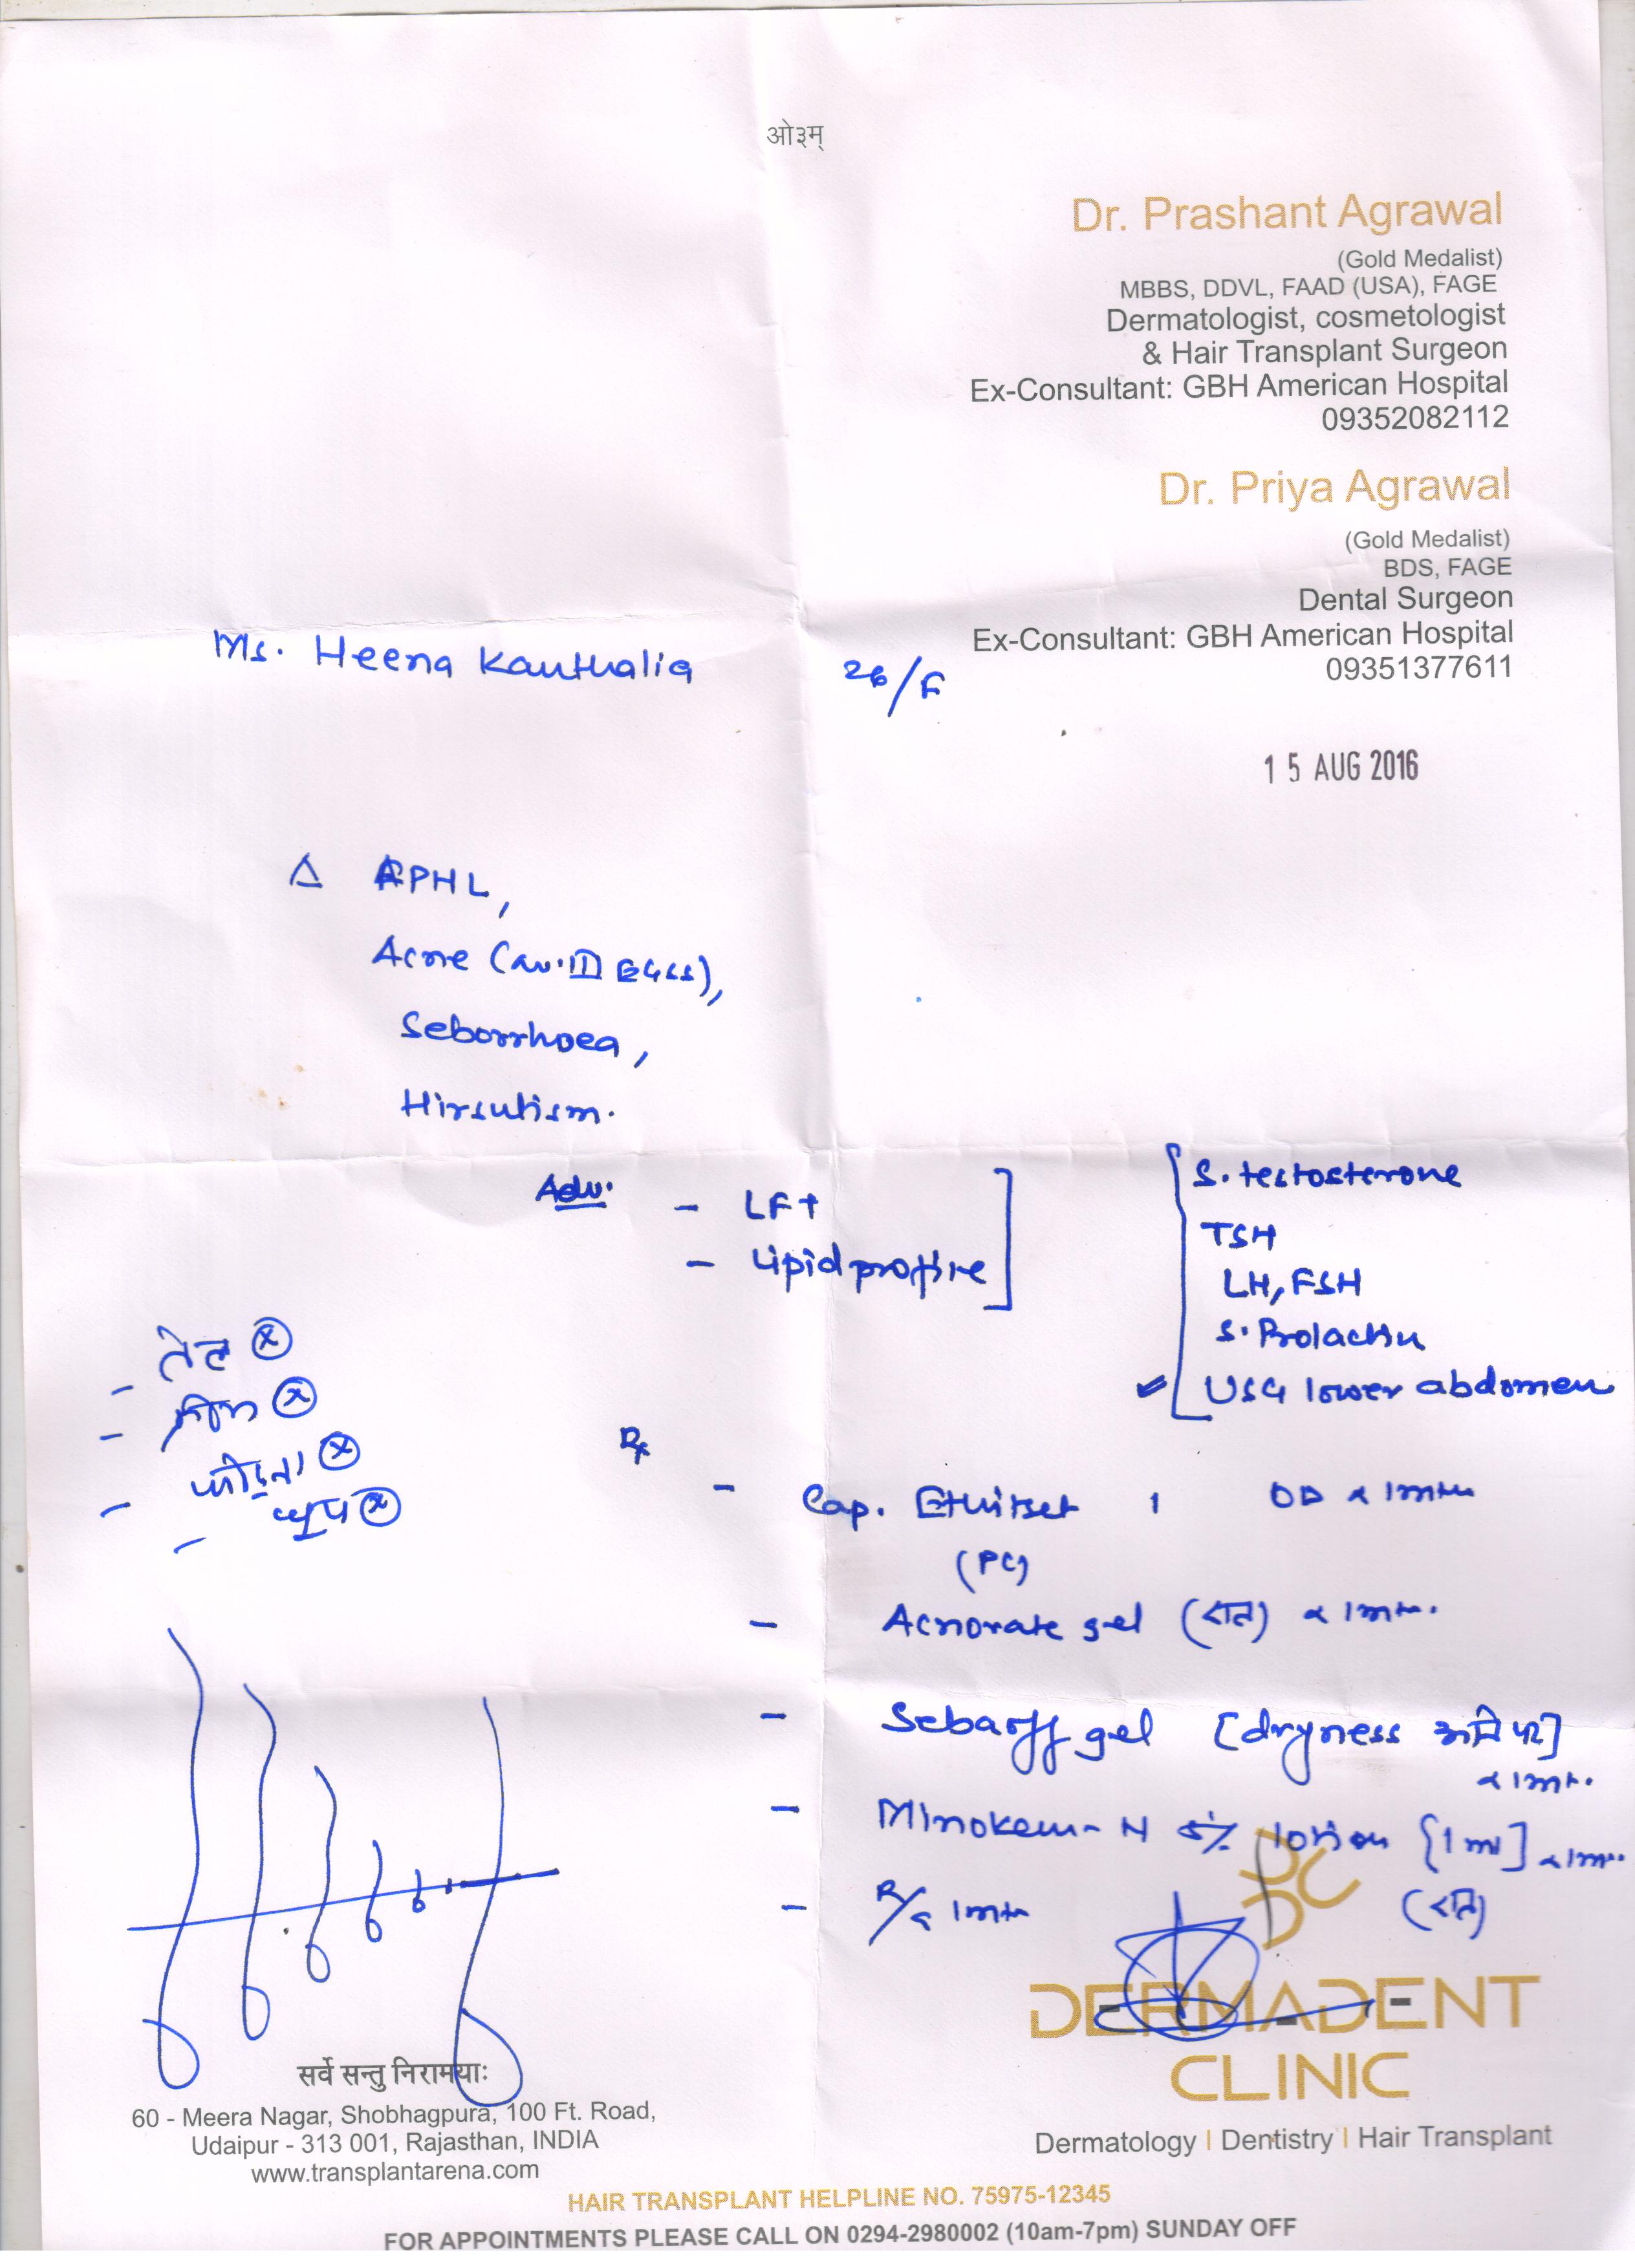 ओ३म्
Dr. Prashant Agrawal
(Gold Medalist)
MBBS, DDVL, FAAD (USA), FAGE
Dermatologist, cosmetologist
& Hair Transplant Surgeon
Ex-Consultant: GBH American Hospital
09352082112
Dr. Priya Agrawal
(Gold Medalist)
BDS, FAGE
Dental Surgeon
Ex-Consultant: GBH American Hospital
09351377611
Ms. Heena Kanthalia 26/F
15 AUG 2016
Δ
Acne
Seborrhoea,
Hirsutism.
Adv. - LFT
- Lipid profile
S. testosterone
TSH
LH, FSH
S. Prolactin
USG lower abdomen
- तेल ⓧ
- ⓧ
- फोड़ना ⓧ
- धूप ⓧ
Rx
- Cap. 1 OD x 1mth
(PC)
- Acnorate gel (रात) x 1mth.
- Seboff gel [dryness आने पर]
x 1mth.
- Minokem-N 5% lotion [1 ml] x 1mth.
(रात)
- R/c 1mth
DERMADENT
CLINIC
Dermatology | Dentistry | Hair Transplant
सर्वे सन्तु निरामयाः
60 - Meera Nagar, Shobhagpura, 100 Ft. Road,
Udaipur - 313 001, Rajasthan, INDIA
www.transplantarena.com
HAIR TRANSPLANT HELPLINE NO. 75975-12345
FOR APPOINTMENTS PLEASE CALL ON 0294-2980002 (10am-7pm) SUNDAY OFF